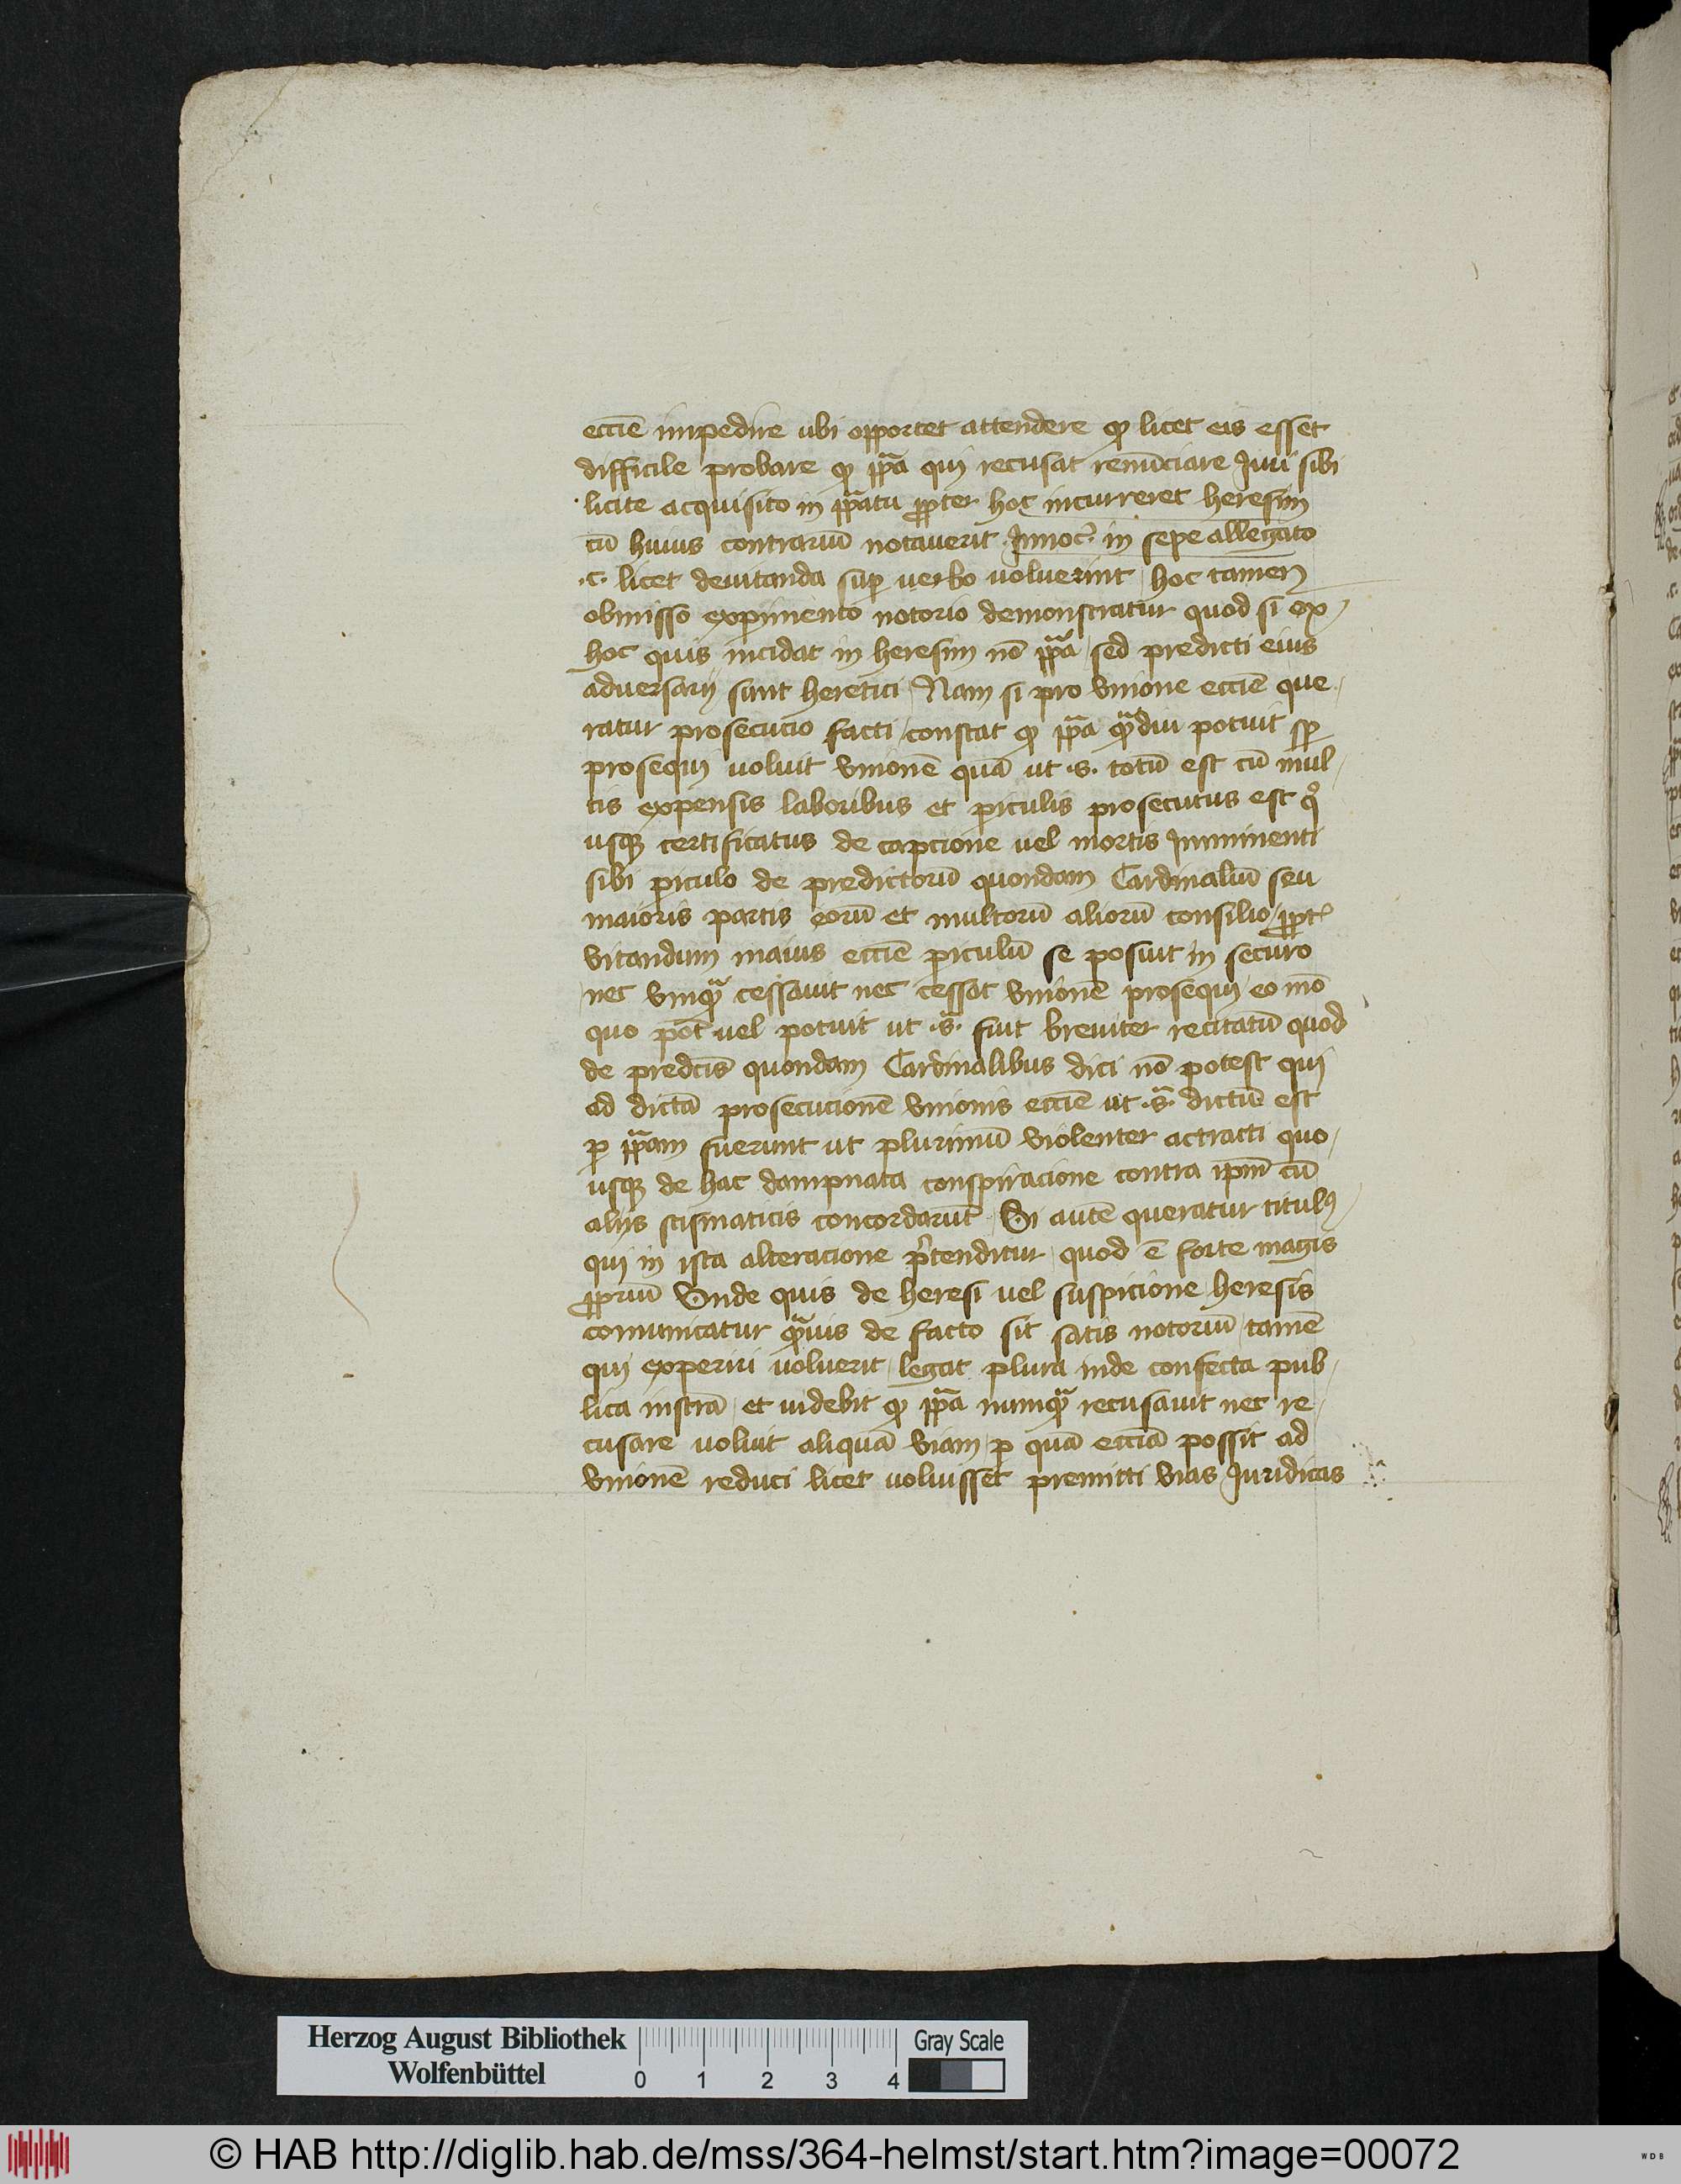 eccie͞ impedire ubi opportet attendere ꝙ licet eis esset
difficile probare ꝙ ꝑp̄a qui recusat renu͞ciare Iuri sibi
licite acquisito in pp̄atu ꝓpter hoc incurreret heresim
cu͞ huius contrariu͞ notauerit Innoc. in sepe allegato
.c. licet deuitanda sup̄ uerbo uoluerint hoc tamen
obmisso exp̱imento notorio demonstratur quod si ex
hoc quis incidat in heresim no͞ pp̄a sed predicti eius
aduersarij sunt heretici Nam si pro vnione eccie͞ que
ratur prosecucio facti constat ꝙ pp̄a qͣ̄diu potuit sp̄
prosequi uoluit vnione͞ qua͞ ut .s. totu͞ est cu͞ mul
tis expensis laboribus et ꝑiculis prosecutus est qͦ
usqꝫ certificatus de capcione uel mortis Imminenti
sibi ꝑiculo de predictoru͞ quondam Cardinaliu͞ seu
maioris partis eoru͞ et multoru͞ alioru͞ consilio ꝓpt᷒
vitandum maius eccie͞ ꝑiculu͞ se posuit in securo
nec vnqͣ̄ cessauit nec cessat vnione͞ prosequi eo mo͞
quo pot͞ uel potuit ut .s. fuit breuiter recitatu͞ quod
de predc͞is quondam Cardinalibus dici no͞ potest qui
ad dicta͞ prosecucione͞ vnionis eccie͞ ut .s. dictu͞ est
ꝑ pp̄am fuerunt ut plurimu͞ violenter actracti quo
usqꝫ de hac dampnata conspiracione contra ip̄m cu͞
alijs scismaticis concordaru͞t Si aute͞ queratur titulꝰ
qui in ista alteracione p̄tenditur quod e͞ forte magis
ꝓpriu͞ Vnde quis de heresi uel suspicione heresis
comunicatur qͣ̄uis de facto sit satis notoriu͞ tame͞
qui experiri uoluerit legat plura inde confecta pub
lica instr͞a et uidebit ꝙ pp̄a numqͣ̄ recusauit nec re
cusare uoluit aliqua͞ viam ꝑ qua͞ eccia͞ possit ad
vnione͞ reduci licet uoluisset premitti vias Iuridicas
Herzog August Bibliothek
Wolfenbüttel
0 1 2 3 4
Gray Scale
© HAB http://diglib.hab.de/mss/364-helmst/start.htm?image=00072
WDB